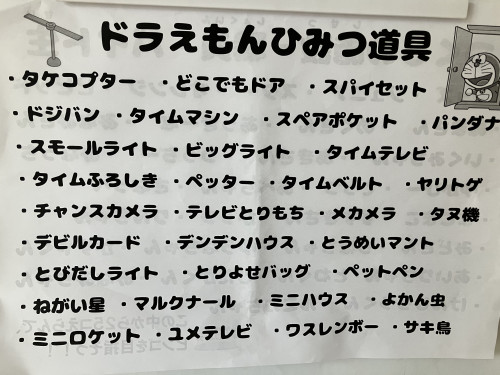 ドラえもんひみつ道具
・タケコプター ・どこでもドア ・スパイセット
・ドジバン ・タイムマシン ・スペアポケット ・パンダナ
・スモールライト ・ビッグライト ・タイムテレビ
・タイムふろしき ・ペッター ・タイムベルト ・ヤリトゲ
・チャンスカメラ ・テレビとりもち ・メカメラ ・タヌ機
・デビルカード ・デンデンハウス ・とうめいマント
・とびだしライト ・とりよせバッグ ・ペットペン
・ねがい星 ・マルクナール ・ミニハウス ・よかん虫
・ミニロケット ・ユメテレビ ・ワスレンボー ・サキ鳥